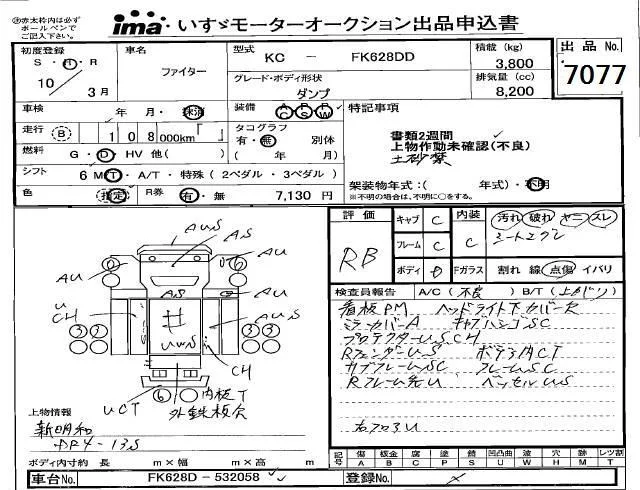 ㊟赤太枠内は必ず
ボールペンで
ご記入下さい。
ima いすゞモーターオークション出品申込書
出品 No.
7077
初度登録
S・H・R
10年 3月
車名
ファイター
型式
KC － FK628DD
グレード・ボディ形状
ダンプ
積載 (kg)
3,800
排気量 (cc)
8,200
車検 年・月・抹消
装備 AC PS PW
特記事項
書類2週間
上物作動未確認(不良)
土砂禁
走行 B 108,000km
タコグラフ
有・無 別体
( 年/ 月)
燃料 G・D・HV 他( )
シフト 6 MT・A/T・特殊 (2ペダル・3ペダル)
架装物年式:( 年式)・不明
※不明の場合は、不明に○をする。
色 指定 R券 有・無 7,130 円
評価
RB
キャブ C
フレーム C
ボディ D
内装 C
Fガラス
汚れ 破れ ヤニ スレ
シートコゲ
割れ 線 点傷 イバリ
検査員報告 A/C (不良) B/T (上がリ)
看板PM ヘッドライト下カバーX
ミラーカバーA キャブハシゴSC
プロテクターU,S,CH
RフェンダーU,S ボデ内CT
サブフレームSC フレームSC
ベッセルUS
AUS
AS
AU
AU
AU
AU
AS
U
CH
UWS
CH
UCT
内板T
外鉄板欠
上物情報
新明和
DR4-13S
ボディ内寸約 長 m×幅 m×高 m
車台No. FK628D－532058
登録No.
記号
傷 板金 腐 塗 錆 凹凸曲 波 穴 跡 レツ割
A B C P S U W H M T